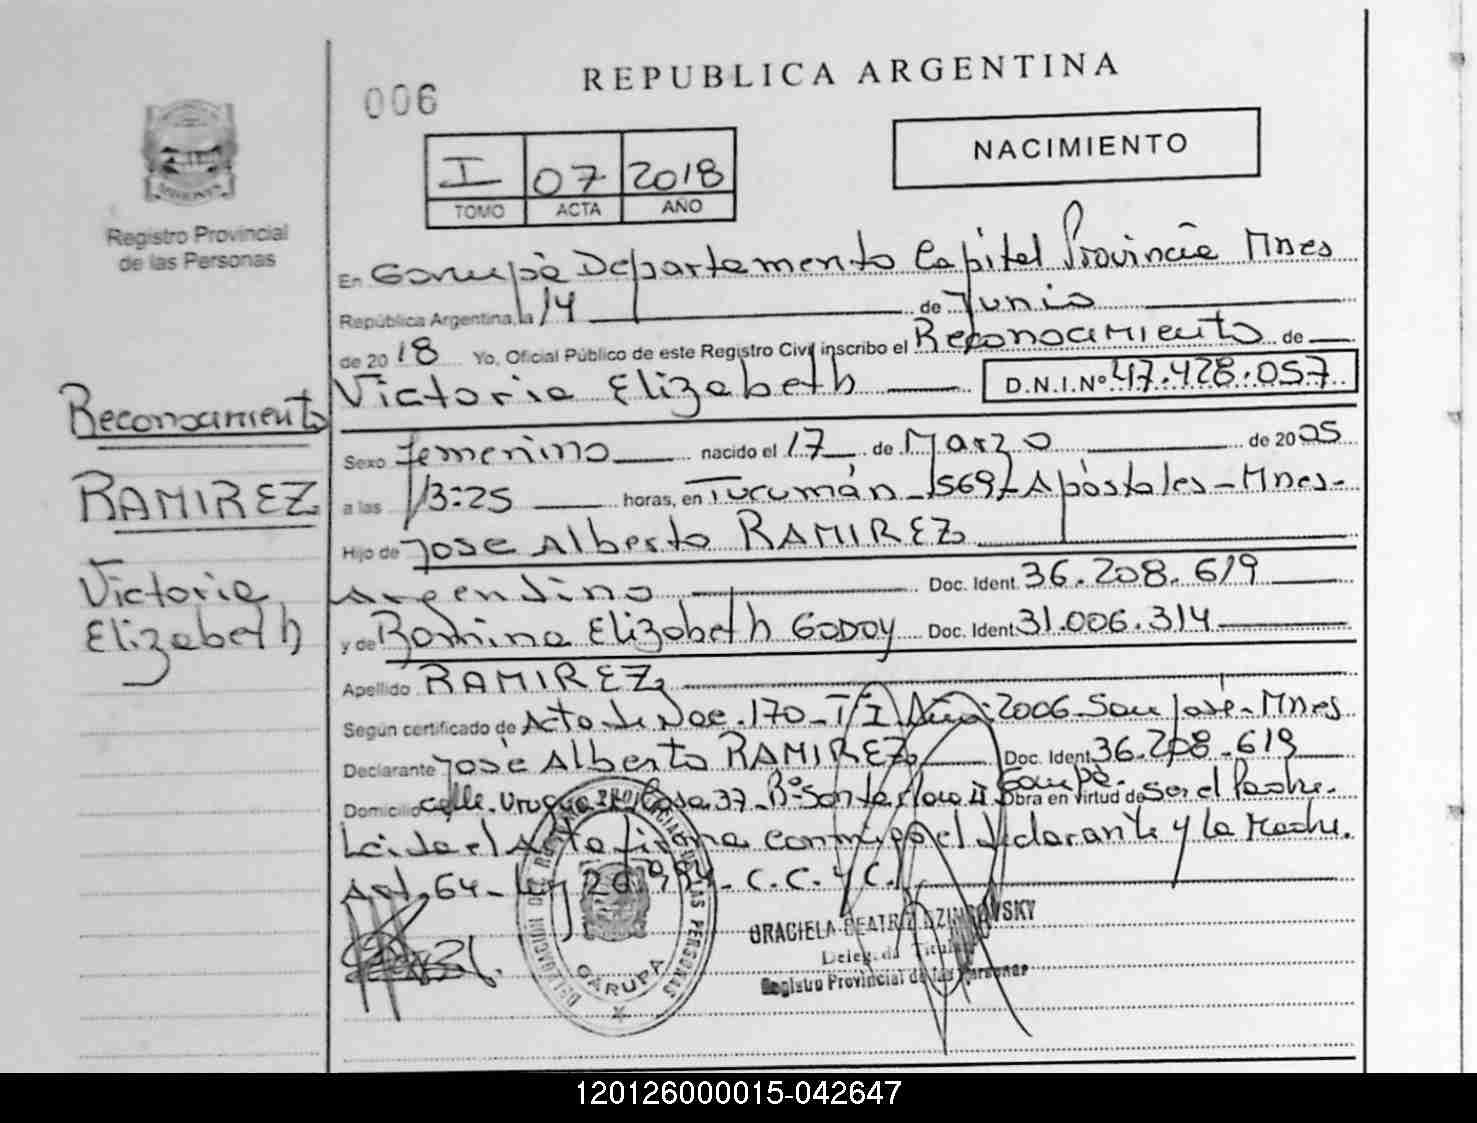 REPUBLICA ARGENTINA
006
NACIMIENTO
I 07 2018
TOMO ACTA AÑO
Registro Provincial
de las Personas
En Garupá Departamento Capital Provincia Mnes
República Argentina, a 14 de Junio
de 2018 Yo, Oficial Público de este Registro Civil inscribo el Reconocimiento de
Victoria Elizabeth D.N.I.Nº 47.428.057
Reconocimiento
RAMIREZ
Victoria
Elizabeth
Sexo Femenino nacido el 17 de Marzo de 2005
a las 13:25 horas, en Tucumán 569 Apóstoles - Mnes-
Hijo de Jose Alberto RAMIREZ
Argentino Doc. Ident. 36.208.619
y de Romina Elizabeth GODOY Doc. Ident. 31.006.314
Apellido RAMIREZ
Según certificado de Acta de Nac. 170 - T/I Año: 2006 San José - Mnes
Declarante José Alberto RAMIREZ Doc. Ident. 36.208.619
Domicilio calle Uruguay Casa 37 - Bº Santa Clara II Garupá. Obra en virtud de Ser el Padre.
Leída el Acta firma conmigo el declarante y la Madre.
Art. 64 - Ley 26.994 - C.C. y C.
DELEGACION DE REGISTRO PROVINCIAL DE LAS PERSONAS
GARUPA
GRACIELA BEATRIZ
Delegada Titular
Registro Provincial de las Personas
120126000015-042647